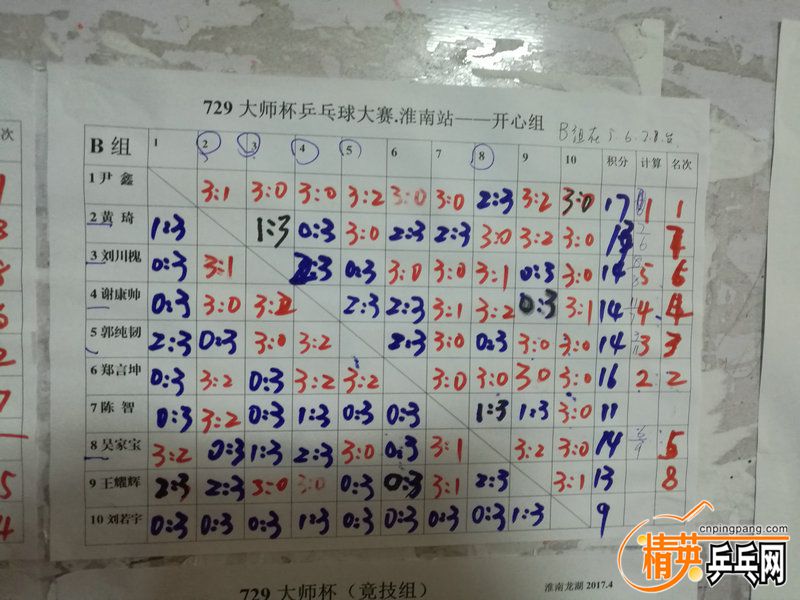 729 大师杯乒乓球大赛.淮南站——开心组
B 组 1 2 3 4 5 6 7 8 9 10 积分 计算 名次
1 尹 鑫 3:1 3:0 3:0 3:2 3:0 3:0 2:3 3:2 3:0 17 1 1
2 黄 琦 1:3 1:3 0:3 3:0 2:3 2:3 3:0 3:2 3:0
3 刘川槐 0:3 3:1 2:3 0:3 3:0 3:0 3:1 0:3 3:0 14 5 6
4 谢康帅 0:3 3:0 3:2 2:3 2:3 3:1 3:2 0:3 3:1 14 4 4
5 郭纯韧 2:3 0:3 3:0 3:2 2:3 3:0 0:3 3:0 3:0 14 3 3
6 郑言坤 0:3 3:2 0:3 3:2 3:2 3:0 3:0 3:0 3:0 16 2 2
7 陈 智 0:3 3:2 0:3 1:3 0:3 0:3 1:3 1:3 3:0 11
8 吴家宝 3:2 0:3 1:3 2:3 3:0 0:3 3:1 3:2 3:0 14 5
9 王耀辉 2:3 2:3 3:0 3:0 0:3 0:3 3:1 2:3 3:1 13 8
10 刘若宇 0:3 0:3 0:3 1:3 0:3 0:3 0:3 0:3 1:3 9
729 大师杯（竞技组）
淮南龙湖 2017.4
cnpingpang.com
精英乒乓网